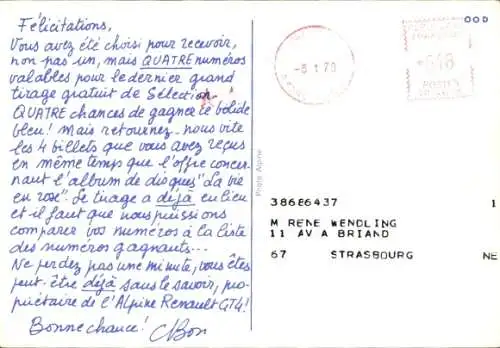 Félicitations,
Vous avez été choisi pour recevoir,
non pas un, mais QUATRE numéros
valables pour le dernier grand
tirage gratuit de Sélection
QUATRE chances de gagner ce bolide
bleu! Mais retournez-nous vite
les 4 billets que vous avez reçus
en même temps que l'offre concer-
nant l'album de disques "La vie
en rose". Le tirage a déjà eu lieu
et il faut que nous puissions
comparer vos numéros à la liste
des numéros gagnants...
Ne perdez pas une minute, vous êtes
peut-être déjà sans le savoir, pro-
priétaire de l'Alpine Renault GT4!
Bonne chance! CBon
Photo Alpine
000
-5 1 78
POSTES
38686437 1
M RENE WENDLING
11 AV A BRIAND
67 STRASBOURG NE